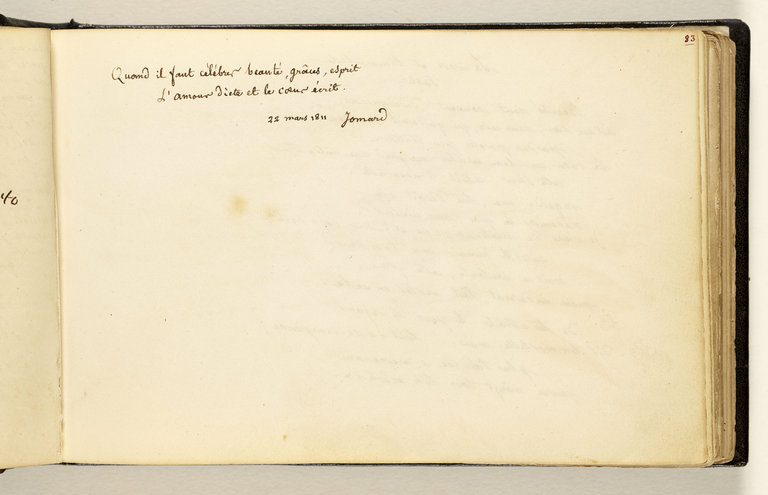 83
Quand il faut célébrer beauté, grâces, esprit
L'amour dicte et le cœur écrit.
22 mars 1811 Jomard
40